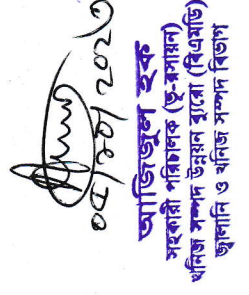 ০৫/১০/২০২৩
আজিজুল হক
সহকারী পরিচালক (ভূ-রসায়ন)
খনিজ সম্পদ উন্নয়ন ব্যুরো (বিএমডি)
জ্বালানি ও খনিজ সম্পদ বিভাগ